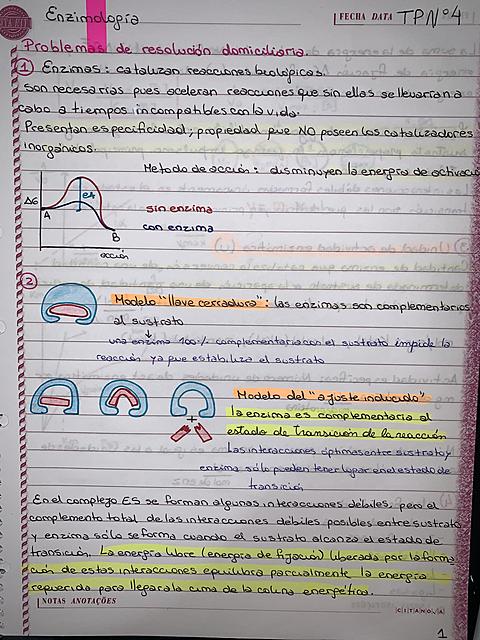 Enzimología
FECHA DATA TPNº4
Problemas de resolución domiciliaria.
1 Enzimas: catalizan reacciones biológicas.
son necesarias pues aceleran reacciones que sin ellas se llevarían a
cabo a tiempos incompatibles con la vida.
Presentan especificidad, propiedad que NO poseen los catalizadores
inorgánicos.
Metodo de acción: disminuyen la energía de activació
ΔG
A
B
sin enzima
con enzima
2
Modelo "llave cerradura": las enzimas son complementarias
al sustrato
una enzima 100% complementaria con el sustrato impide la
reacción ya que estabiliza el sustrato
Modelo del "ajuste inducido"
la enzima es complementaria al
estado de transición de la reacción
Las interacciones óptimas entre sustrato y
enzima sólo pueden tener lugar en el estado de
transición
+
En el complejo ES se forman algunas interacciones débiles, pero el
complemento total de las interacciones débiles posibles entre sustrato
y enzima sólo se forma cuando el sustrato alcanza el estado de
transición. La energía libre (energía de fijación) liberada por la forma
ción de estas interacciones equilibra parcialmente la energía
requerida para llegar a la cima de la colina energética.
NOTAS ANOTAÇÕES
CITANOVA
1